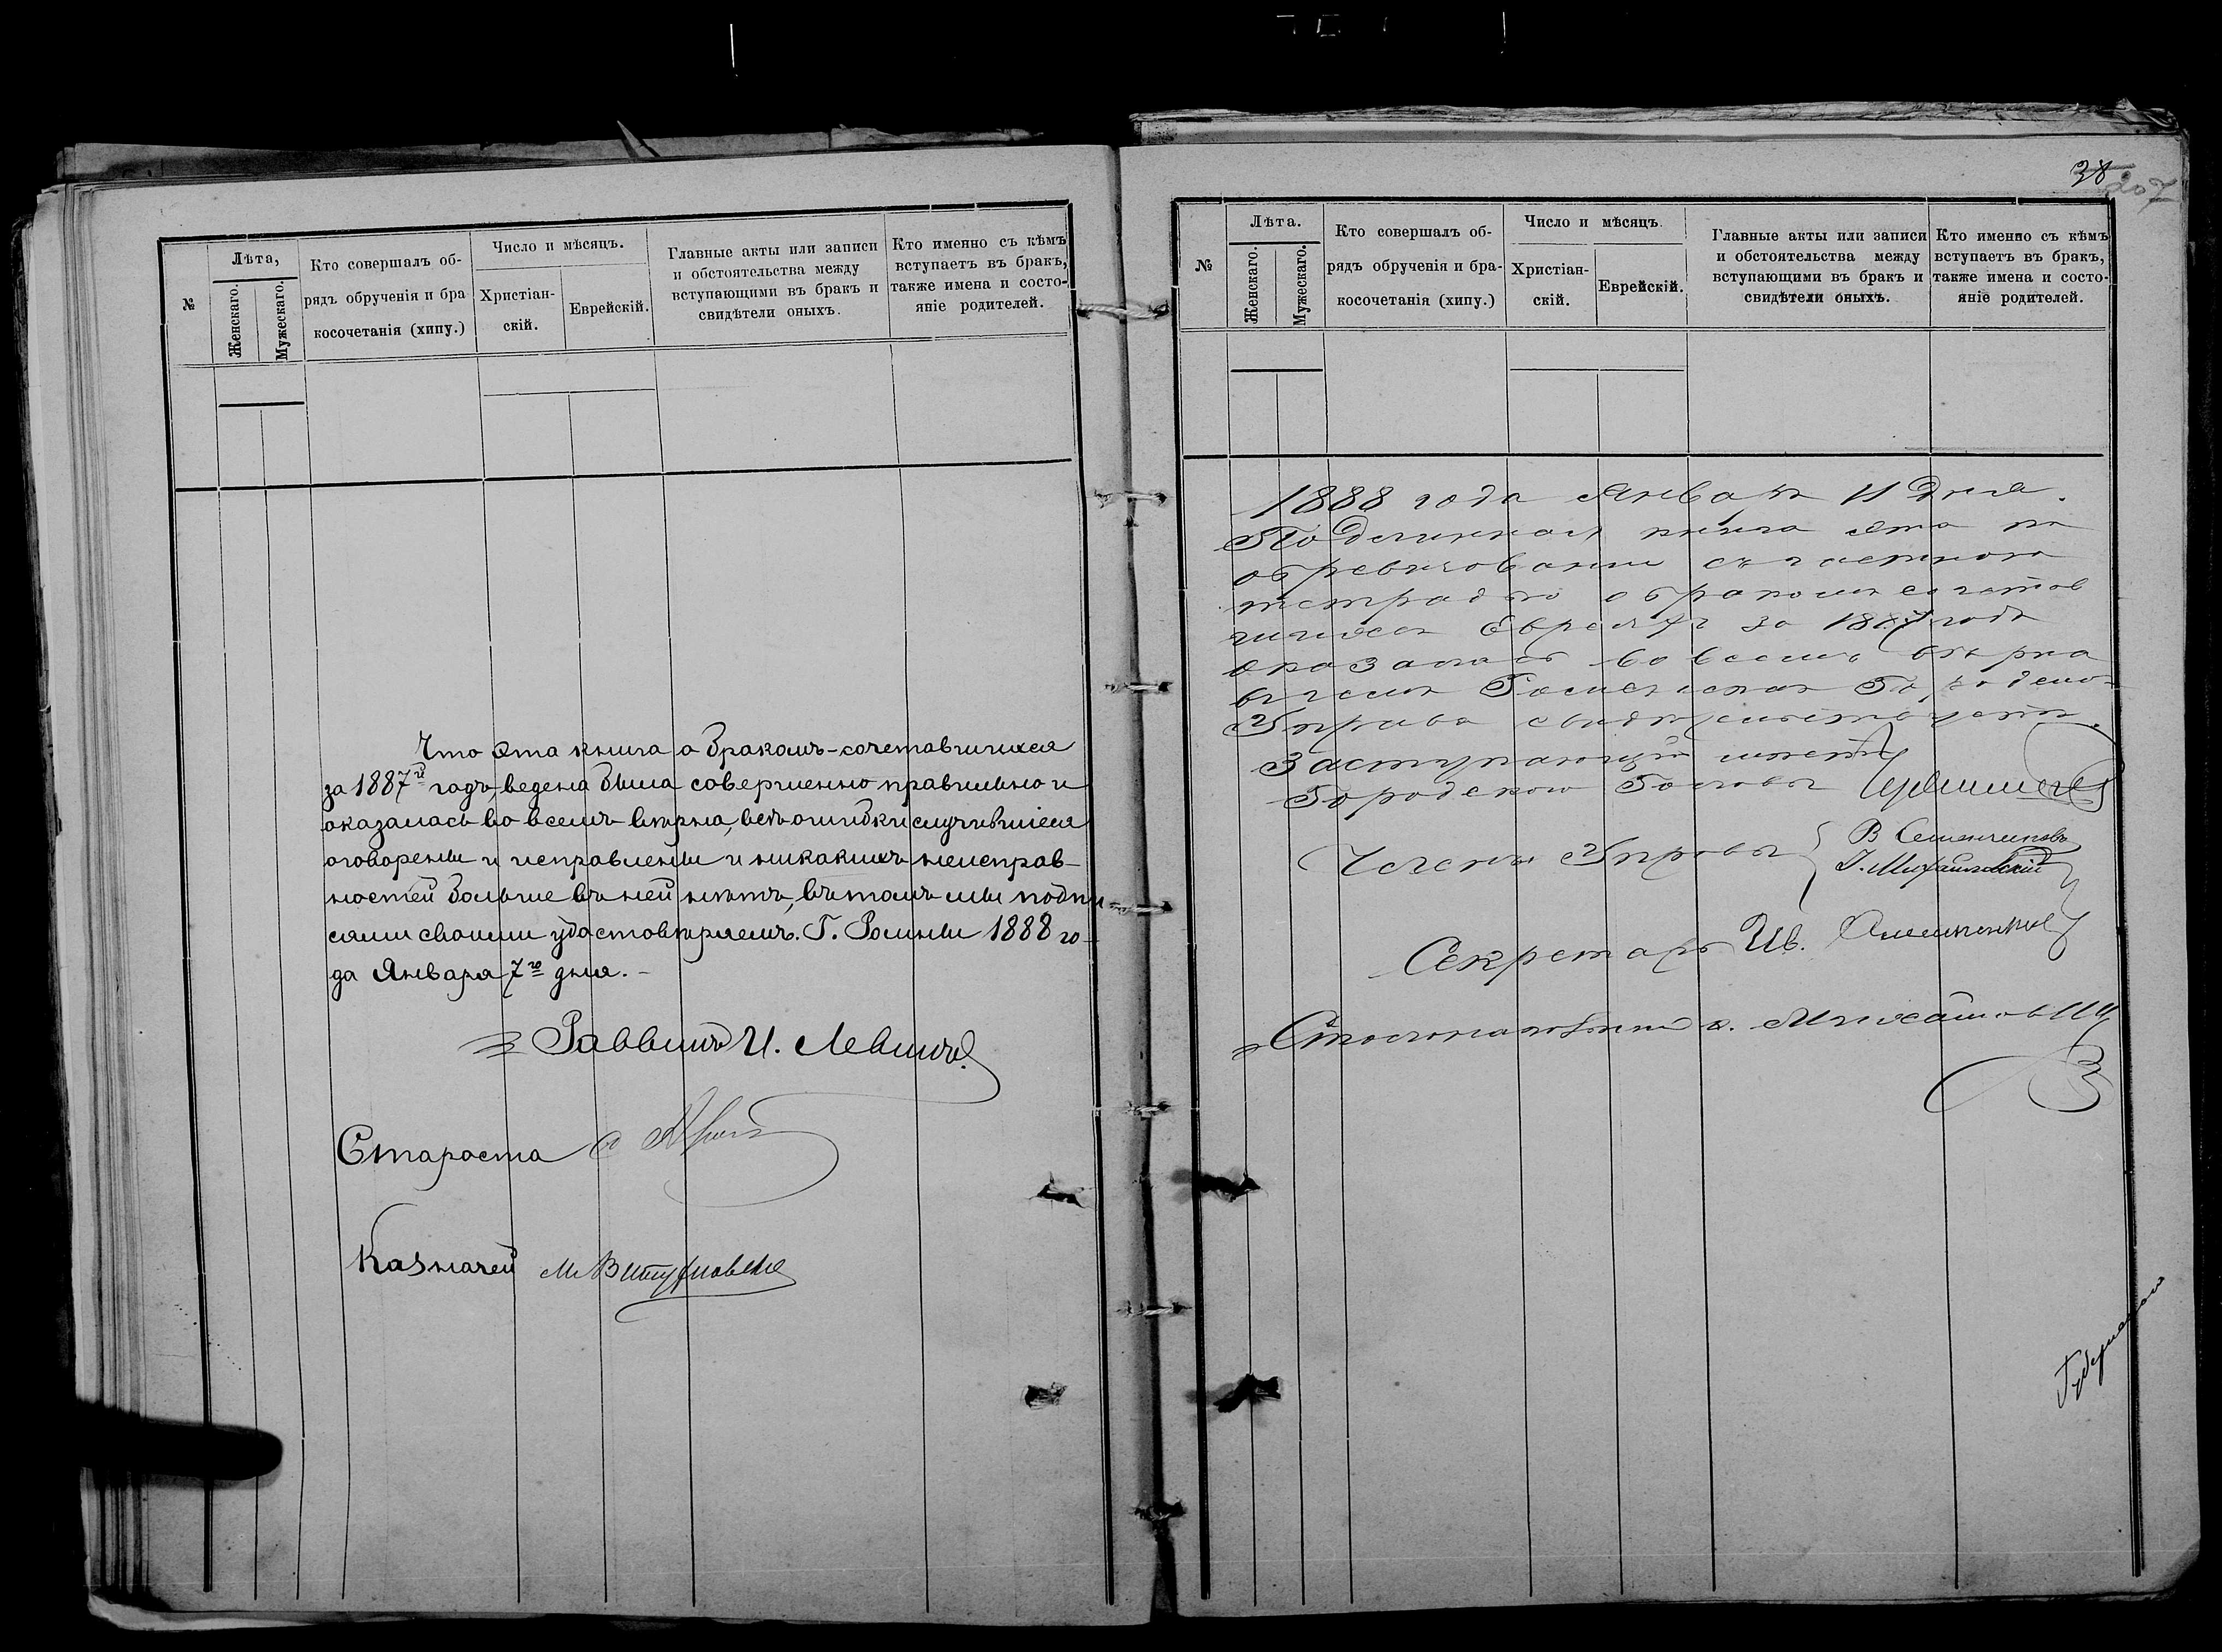 №
Лѣта,
Женскаго.
Мужескаго.
Кто совершалъ об-
рядъ обрученія и бра
косочетанія (хипу.)
Число и мѣсяцъ.
Христіан-
скій.
Еврейскій.
Главные акты или записи
и обстоятельства между
вступающими въ бракъ и
свидѣтели оныхъ.
Кто именно съ кѣмъ
вступаетъ въ бракъ,
также имена и состо-
яніе родителей.
Что эта книга о бракомъ-сочетавшихся
за 1887й годъ, ведена была совершенно правильно и
оказалась во всемъ вѣрна, всѣ ошибки случившіеся
оговорены и исправлены и никакихъ неисправ-
ностей больше въ ней нѣтъ, въ томъ мы подпи-
сями своими удостовѣряемъ. Г. Ромны 1888 го-
да Января 7го дня.-
Раввинъ И. Левинъ
Староста
Казначей М
38
207
№
Лѣта.
Женскаго.
Мужескаго.
Кто совершалъ об-
рядъ обрученія и бра-
косочетанія (хипу.)
Число и мѣсяцъ.
Христіан-
скій.
Еврейскій.
Главные акты или записи
и обстоятельства между
вступающими въ бракъ и
свидѣтели оныхъ.
Кто именно съ кѣмъ
вступаетъ въ бракъ,
также имена и состо-
яніе родителей.
1888 года Января 11 дня.
Подлинная книга эта по
обревизовании съ частною
тетрадью о бракомъ сочетав
шихся Евреяхъ за 1887 годъ
оказалась во всемъ вѣрна
въ чемъ Роменская Городская
Управа свидѣтельствуетъ.
Заступающій мѣсто
Городского Головы
Члены Управы
В Семенченковъ
І. Михайловскій
Секретарь Ив.
Столоначальникъ Михайловскій